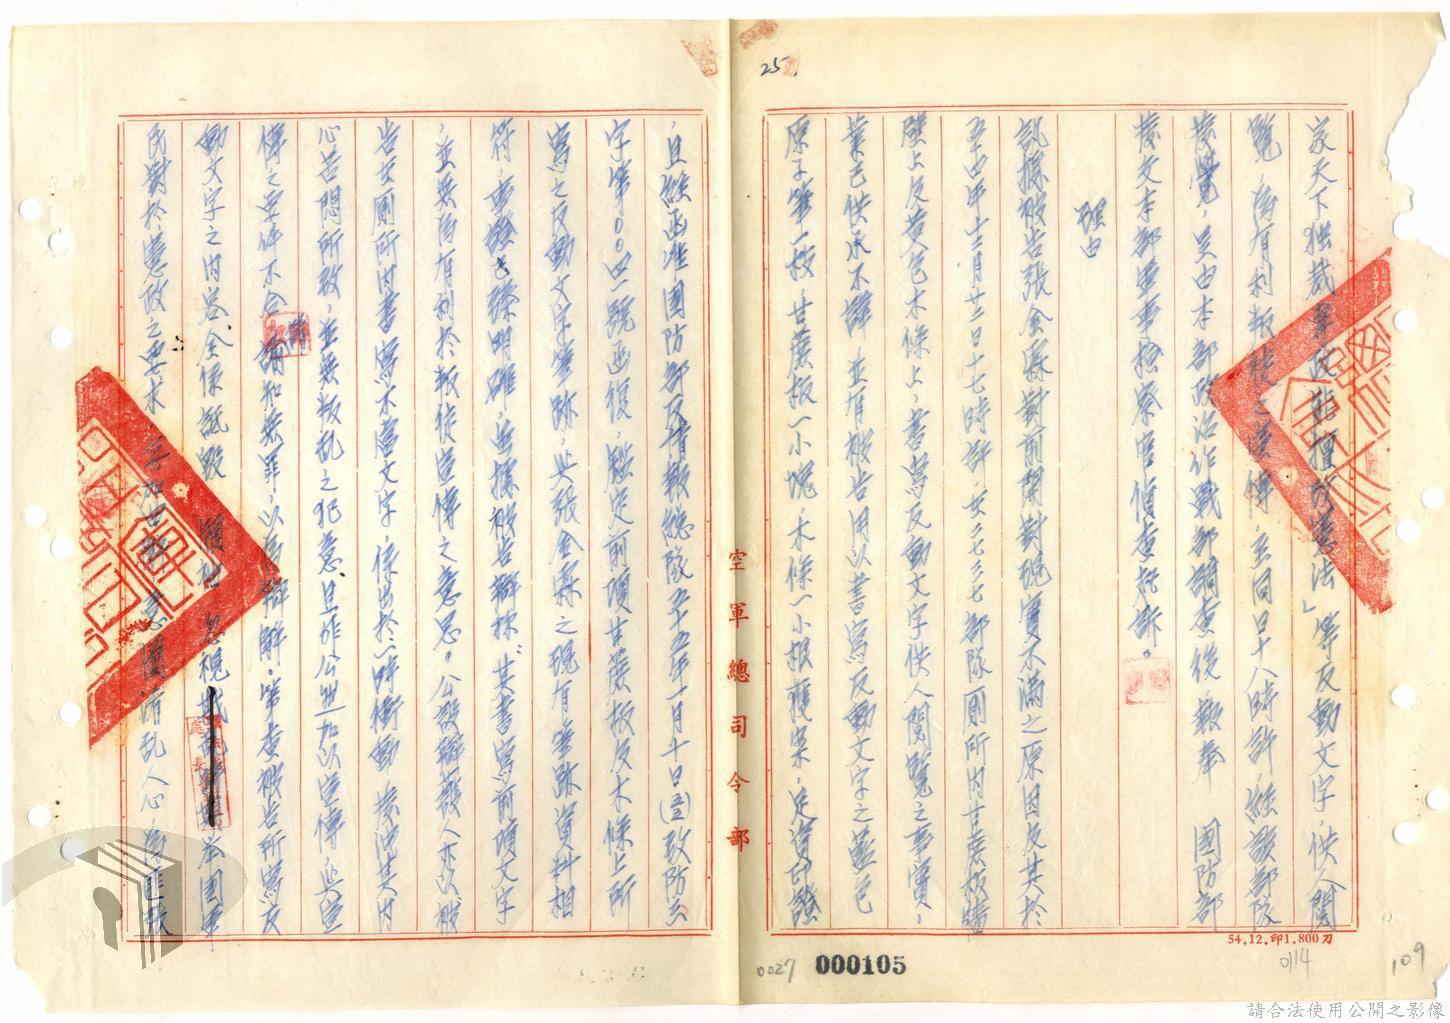 25.
家天下獨裁專政非擅改憲法」等反動文字，供人閱
覽，為有利叛徒之宣傳，至同日十八時許，經該部隊
發覺，呈由本部政治作戰部調查後，報奉 國防部
發交本部軍事檢察官偵查起訴。
理由
訊據被告張金霖對前開對現實不滿之原因及其於
五十四年十二月廿二日十七時許，在三七三七部隊厠所內甘蔗板牆
壁上及黃色木條上，書寫反動文字供人閱覽之事實，
業已供承不諱 並有被告用以書寫反動文字之藍色
原子筆一枝，甘蔗板一小塊，木條一小根獲案，足資印證
，且經函准國防部反情報總隊五十五年一月十日致防
字第００四一號函復，鑑定前項甘蔗板及木條上所
寫之反動文字筆跡，與張金霖之現有筆跡資料相
符，事證已臻明確，無據被告辯稱：其書寫前項文字
，並無為有利於叛徒宣傳之意思。公設辯護人亦以被
告在厠所內書寫不當文字，係出於一時衝動 發洩其內
心苦悶所致，並無叛亂之犯意且非公然加以宣傳，與宣
傳之要件不合 請諭知無罪，以為辯解。第查被告所寫反
動文字之內容全係詆毀 忽視我 國軍
民對於憲政之要求， 意圖淆亂人心，為匪張
空軍總司令部
54.12.印1.800刀
0027 000105
0114
109
請合法使用公開之影像